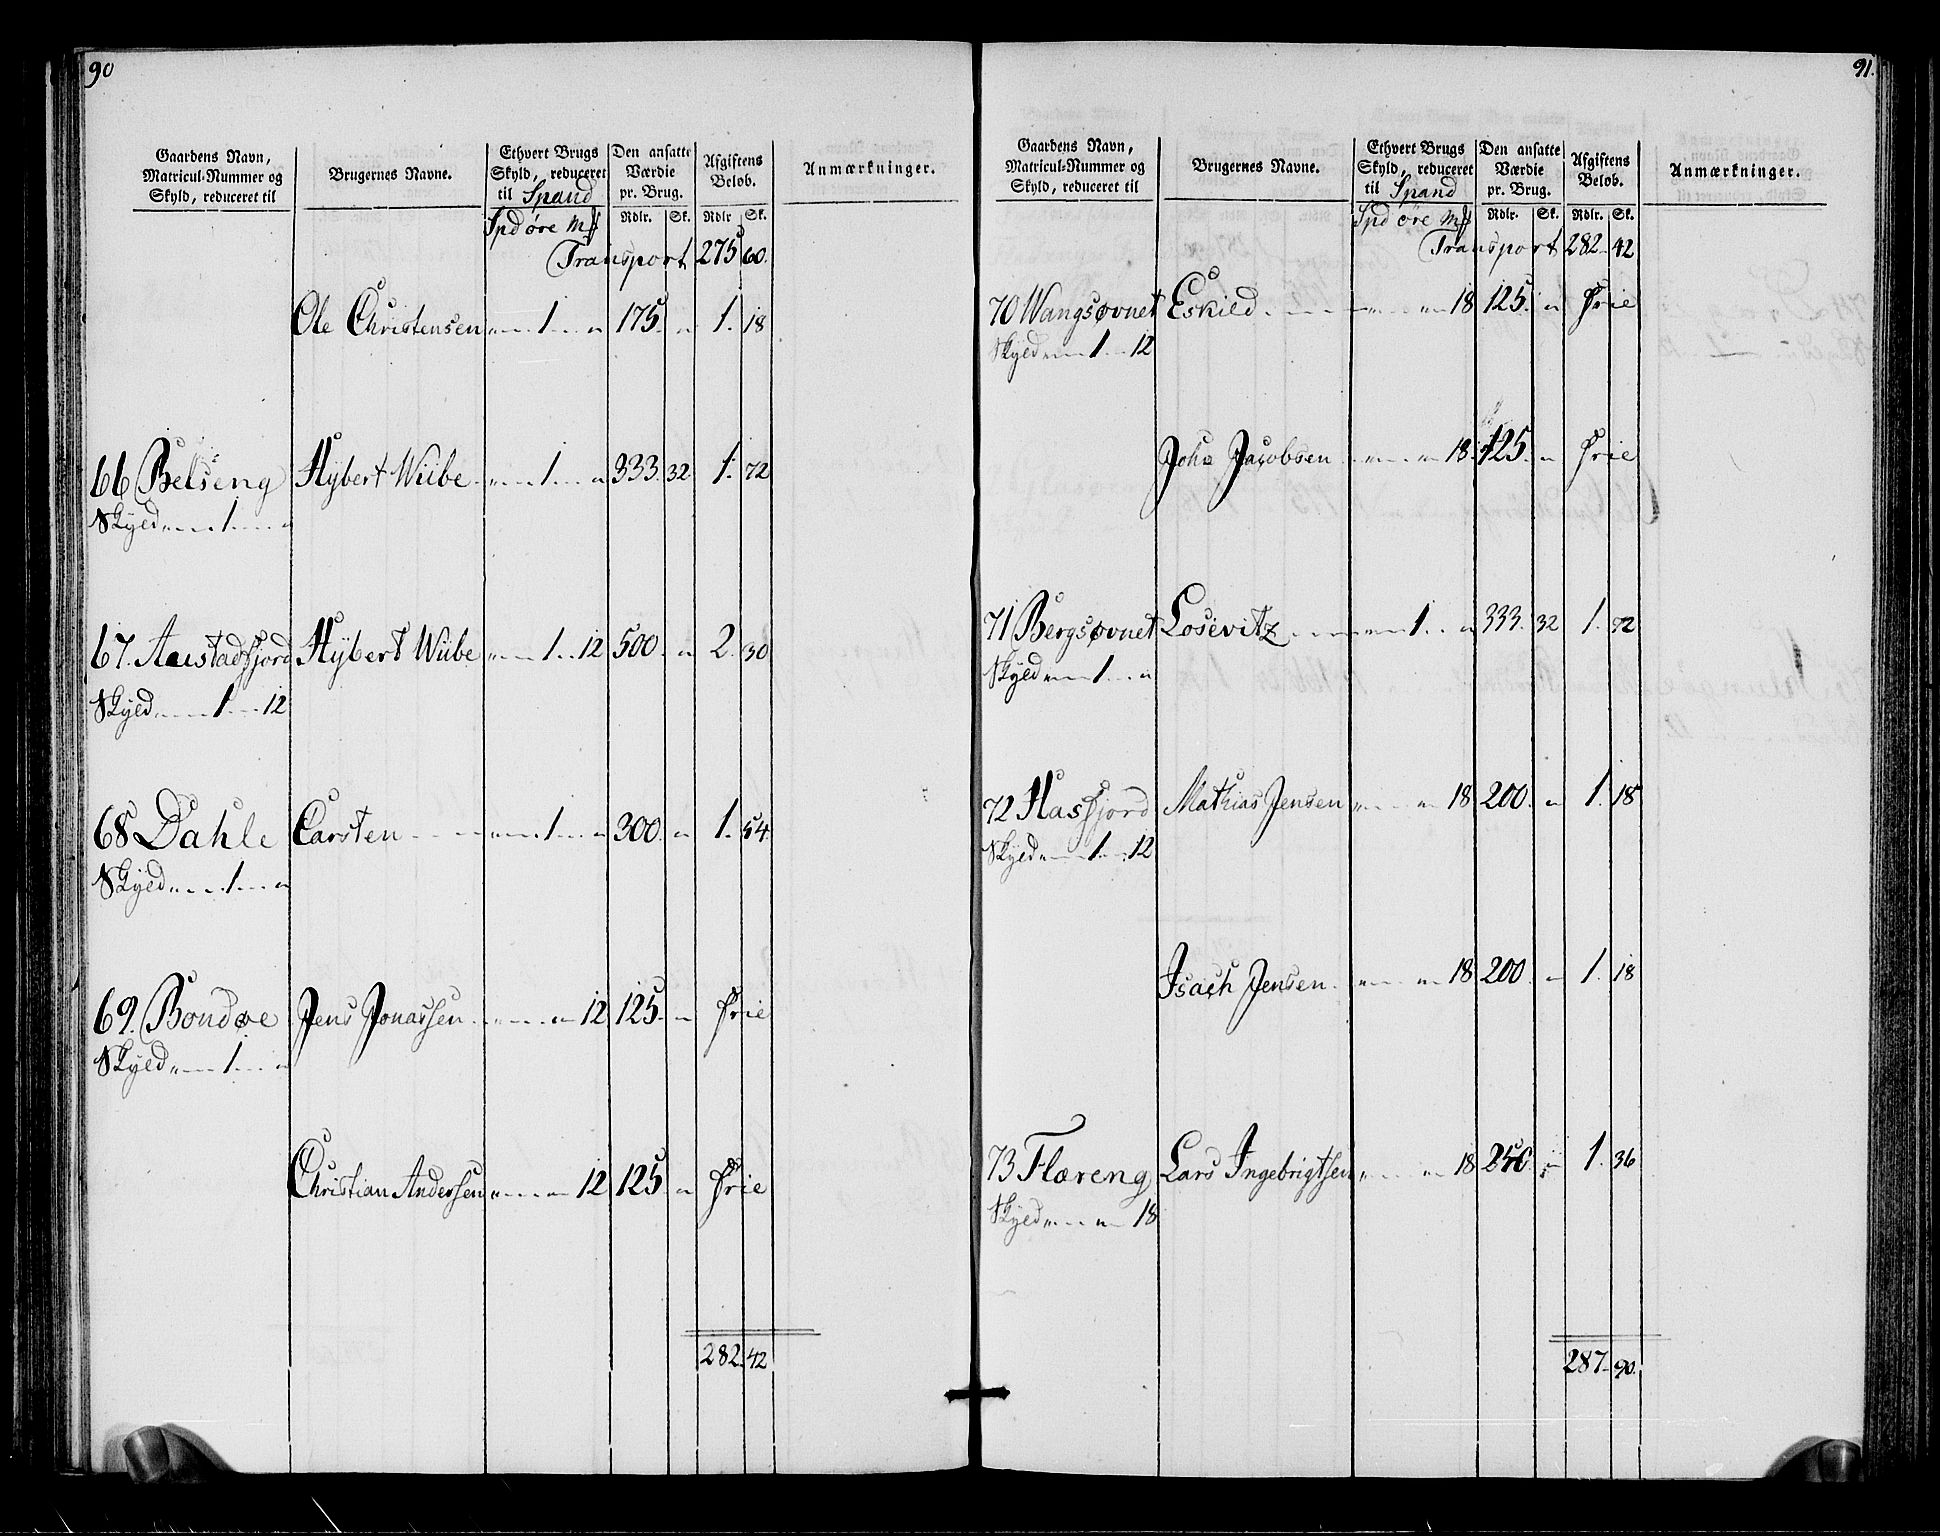 90
Gaardens Navn, Matricul-Nummer og Skyld, reduceret til
Brugernes Navne.
Ethvert Brugs Skyld, reduceret til Spand
Den ansatte Værdie pr. Brug.
Afgiftens Beløb.
Anmærkninger.
Spd øre Mk
Rdlr. Sk. Rdlr Sk.
Transport 275 60.
Ole Christensen „ 1 „ 175. „ 1. 18
66 Belseng Hybert Wiibe „ 1 „ 333. 32 1. 72
Skyld „ 1 „
67. Austadfjord Hybert Wiibe „ 1 12 500. „ 2. 30
Skyld 1 12
68 Dahle Carsten „ 1 „ 300. „ 1. 54
Skyld „ 1 „
69. Bondøe Jens Jonassen „ „ 12 125. „ Frie
Skyld „ 1 „
Christian Andersen „ „ 12 125 „ Frie
282. 42
91.
Gaardens Navn, Matricul-Nummer og Skyld, reduceret til
Brugernes Navne.
Ethvert Brugs Skyld, reduceret til Spand
Den ansatte Værdie pr. Brug.
Afgiftens Beløb.
Anmærkninger.
Spd øre Mk
Rdlr. Sk. Rdlr. Sk.
Transport 282. 42
70 Wangsøvnet Eskild „ „ 18 125. „ Frie
Skyld „ 1 12
John Jacobsen „ „ 18. 125. „ Frie
71 Bergsøvnet Losevitz „ 1 „ 333. 32 1. 72
Skyld „ 1 „
72 Hasfjord Mathias Jensen „ „ 18 200. „ 1. 18
Skyld „ 1 12
Isach Jensen „ „ 18 200 „ 1. 18
73 Flæreng Lars Ingebrigtsen „ „ 18 250 „ 1. 36
Skyld „ „ 18
287. 90.